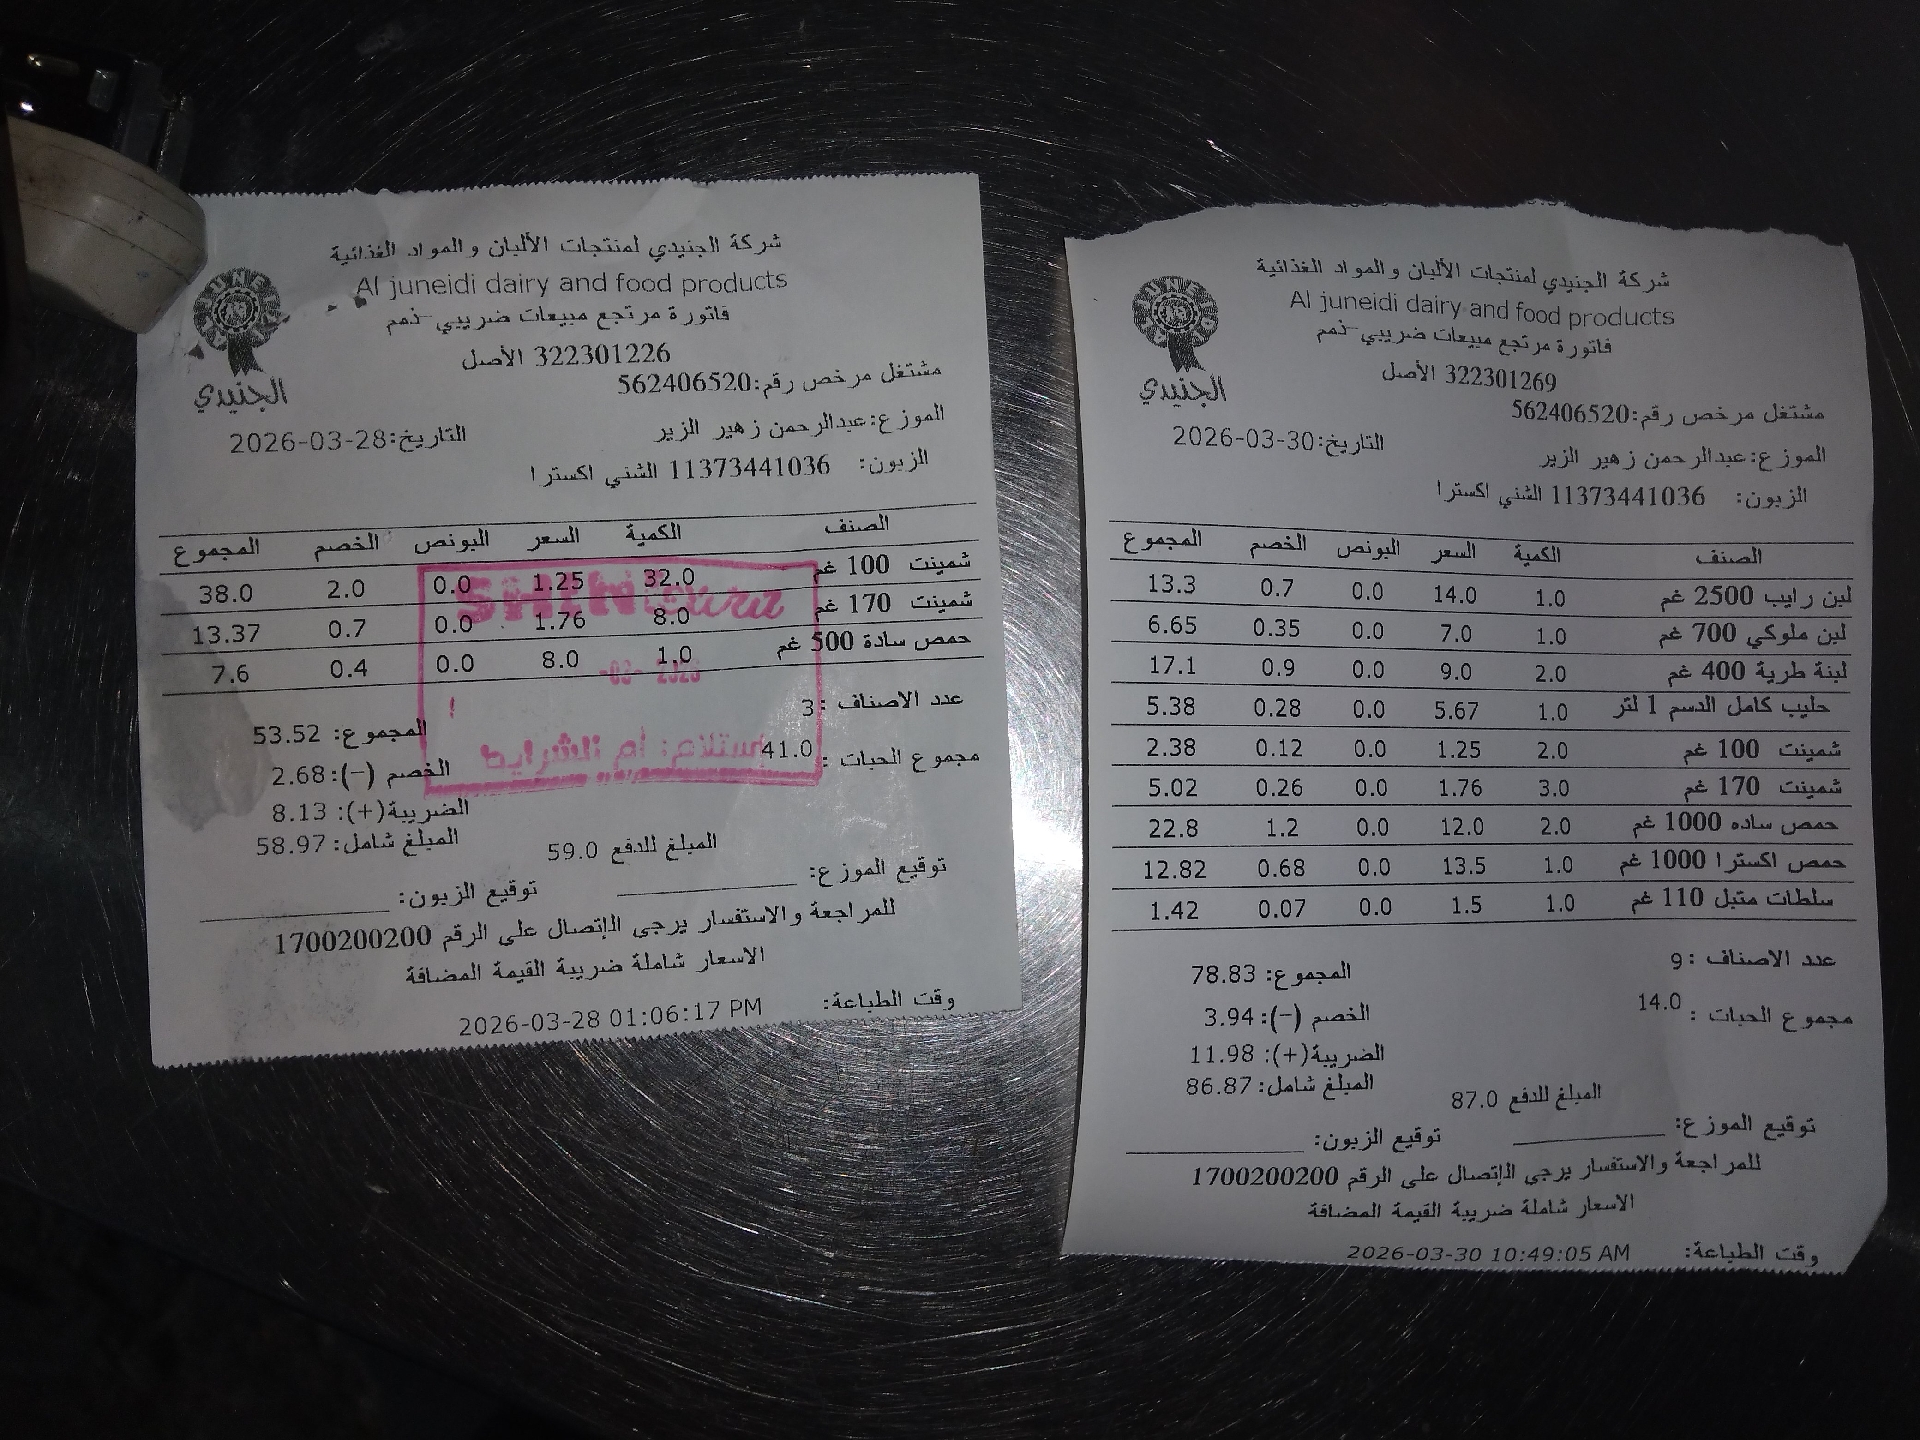 شركة الجنيدي لمنتجات الألبان والمواد الغذائية
Al juneidi dairy and food products
فاتورة مرتجع مبيعات ضريبي-ذمم
322301226 الأصل
مشتغل مرخص رقم:562406520
الموزع:عبدالرحمن زهير الزير التاريخ:2026-03-28
الزبون: 11373441036 الشني اكسترا
الجنيدي
الصنف الكمية السعر البونص الخصم المجموع
شمينت 100 غم 32.0 1.25 0.0 2.0 38.0
شمينت 170 غم 8.0 1.76 0.0 0.7 13.37
حمص سادة 500 غم 1.0 8.0 0.0 0.4 7.6
عدد الاصناف :3 المجموع: 53.52
مجموع الحبات : 41.0 الخصم (-): 2.68
الضريبة(+): 8.13
المبلغ للدفع 59.0 المبلغ شامل: 58.97
توقيع الموزع: توقيع الزبون:
للمراجعة والاستفسار يرجى الإتصال على الرقم 1700200200
الاسعار شاملة ضريبة القيمة المضافة
وقت الطباعة: 2026-03-28 01:06:17 PM
2026
إستلام: ام الشرايط
شركة الجنيدي لمنتجات الألبان والمواد الغذائية
Al juneidi dairy and food products
فاتورة مرتجع مبيعات ضريبي-ذمم
322301269 الأصل
مشتغل مرخص رقم:562406520
الموزع:عبدالرحمن زهير الزير التاريخ:2026-03-30
الزبون: 11373441036 الشني اكسترا
الجنيدي
الصنف الكمية السعر البونص الخصم المجموع
لبن رايب 2500 غم 1.0 14.0 0.0 0.7 13.3
لبن ملوكي 700 غم 1.0 7.0 0.0 0.35 6.65
لبنة طرية 400 غم 2.0 9.0 0.0 0.9 17.1
حليب كامل الدسم 1 لتر 1.0 5.67 0.0 0.28 5.38
شمينت 100 غم 2.0 1.25 0.0 0.12 2.38
شمينت 170 غم 3.0 1.76 0.0 0.26 5.02
حمص ساده 1000 غم 2.0 12.0 0.0 1.2 22.8
حمص اكسترا 1000 غم 1.0 13.5 0.0 0.68 12.82
سلطات متبل 110 غم 1.0 1.5 0.0 0.07 1.42
عدد الاصناف :9 المجموع: 78.83
مجموع الحبات : 14.0 الخصم (-): 3.94
الضريبة(+): 11.98
المبلغ للدفع 87.0 المبلغ شامل: 86.87
توقيع الموزع: توقيع الزبون:
للمراجعة والاستفسار يرجى الإتصال على الرقم 1700200200
الاسعار شاملة ضريبة القيمة المضافة
وقت الطباعة: 2026-03-30 10:49:05 AM